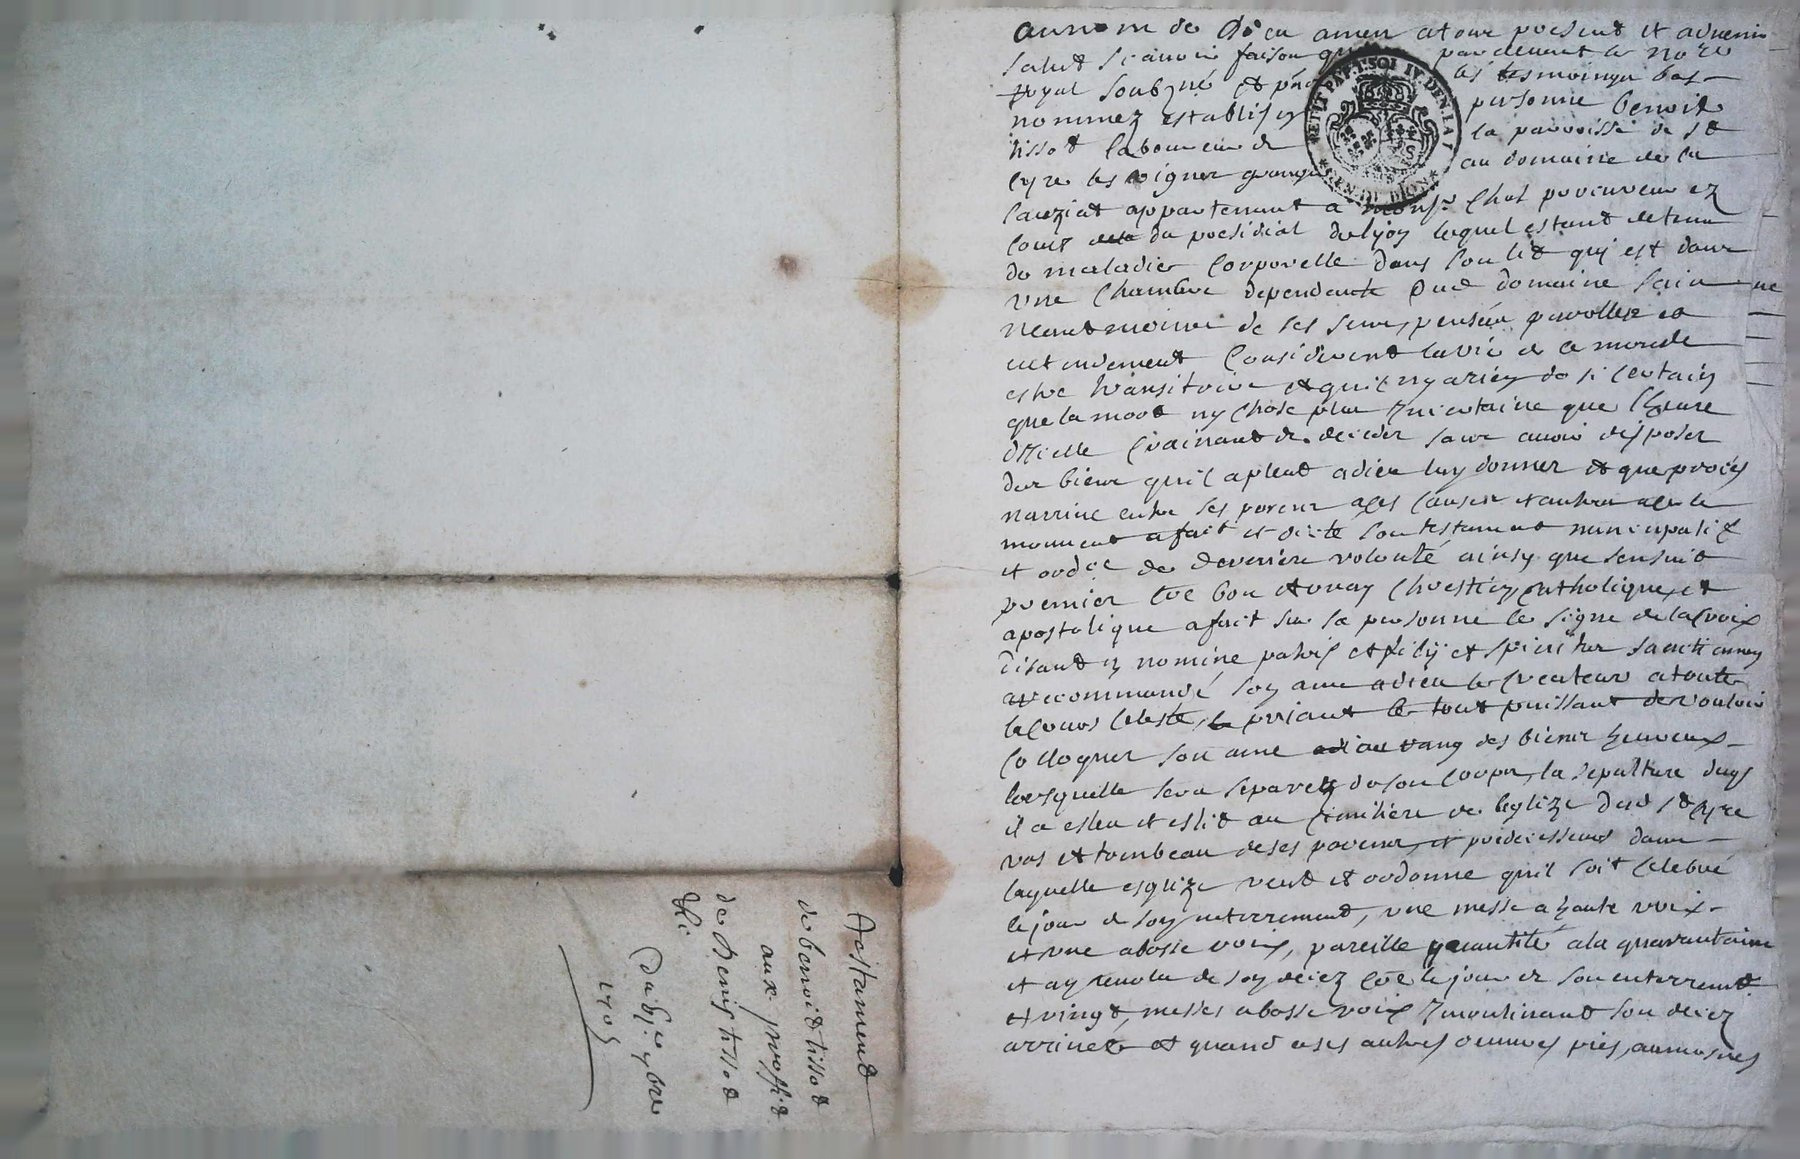 au nom de Dieu amen a tous presents et advenir
salut scavoir faisons que pardevant le no.re
royal soubzné et pñs les tesmoingz bas
nommez estably en personne benoit
tissot laboureur de la parroisse de st
cyre les vignes granger au domaine de la
appartenant a monsr Chol procureur ez
cours du presidial de lyon lequel estant detenu
de maladie corporelle dans son lit qui est dans
une chambre dependante dud domaine sain
neantmoins de ses sens, pensée parolles et
entendement considerant la vie de ce monde
estre transitoire et quil ny a rien de si certain
que la mort ny chose plus incertaine que lheure
dicelle craignant de deceder sans avoir disposer
des biens quil a pleut a dieu luy donner et que procés
narrive entre ses parens a ces causes et autres
mouvent a fait et dicté son testament nuncupatif
et ordce de derniere volonté ainsy que sensuit
premier coe bon et vray chrestien catholique, et
apostolique a fait sur sa personne le signe de la croix
disant in nomine patris et filij et spiritus sancti amen
a recommandé son ame a dieu le createur a toute
la cour celeste, priant le tout puissant de vouloir
colloquer son ame au rang des bienheureux
lorsquelle sera separez de son corps, la sepulture duquel
il a esleu et eslit au cimitiere de leglize dud st cyre
vas et tombeau de ses parens, et predecesseurs dans
laquelle esglize veut et ordonne quil soit celebré
le jour de son enterrement, une messe a haute voix
et une a basse voix, pareille quantité a la quarantaine
et an revolu de son decez coe le jour de son enterremt
et vingt, messes a basse voix incontinant son decez
arrivé et quand a ses autres oeuvres pies, aumosnes
PETIT PAP. 1. SOL IV. DEN. LA F
GEN. DE LION
Testament
de benoit tissot
aux proffit
de Denis tissot
Du 6e xbre